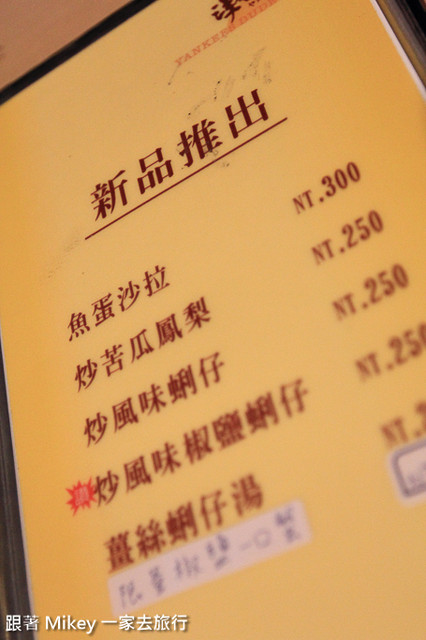 YANKEE DUDE
新品推出
魚蛋沙拉 NT.300
炒苦瓜鳳梨 NT.250
炒風味蜊仔 NT.250
炒風味椒鹽蜊仔 NT.250
薑絲蜊仔湯 NT.2
限量椒鹽一口蟹
跟著 Mikey 一家去旅行